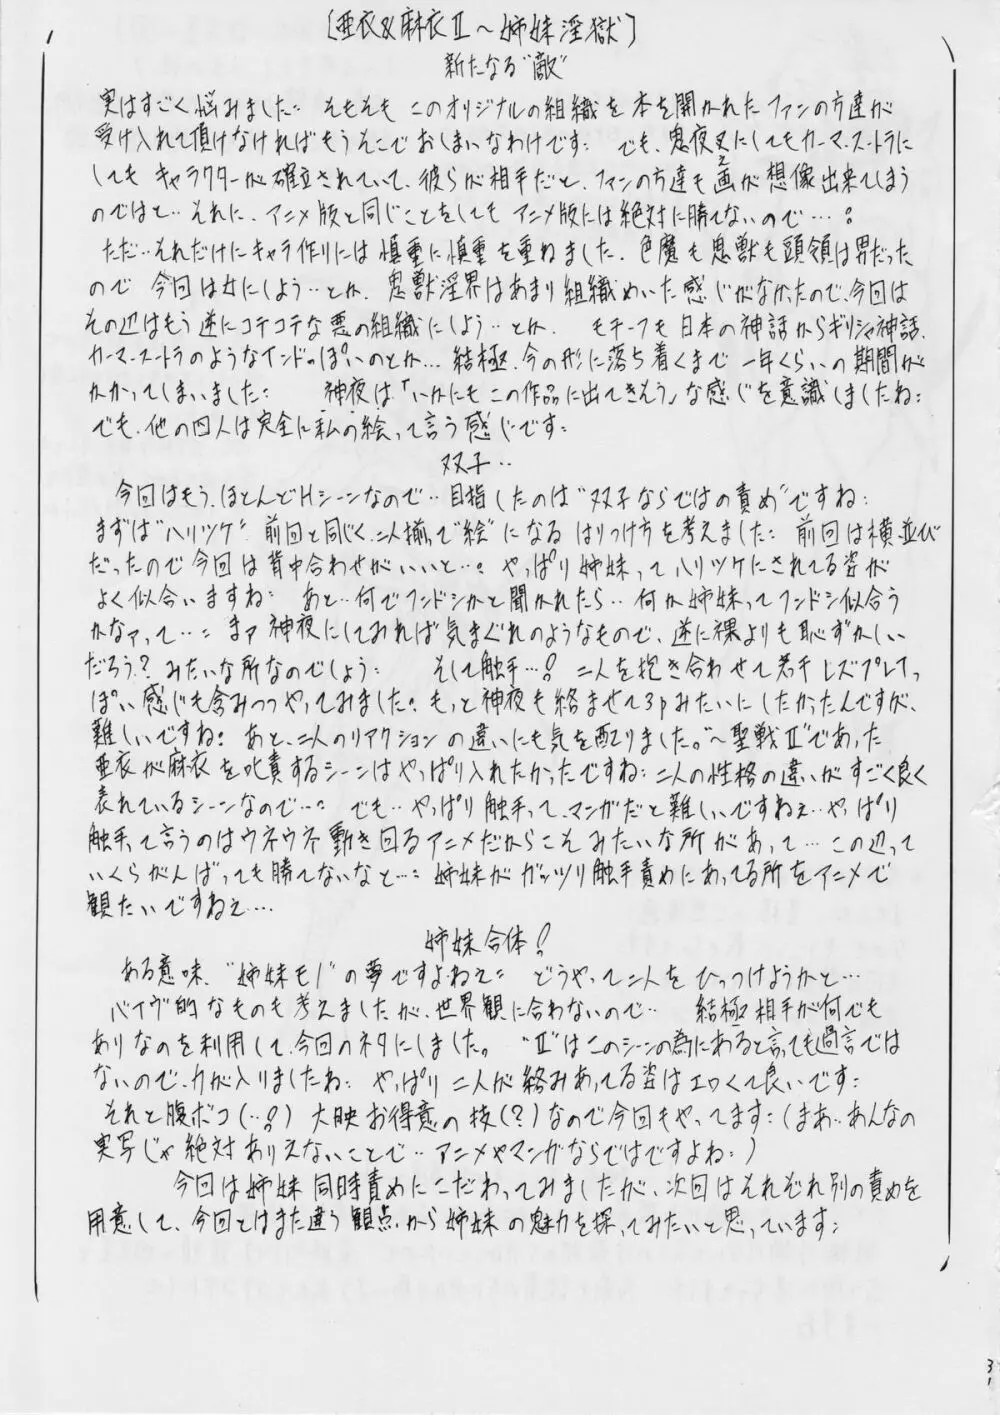 [亜衣&麻衣Ⅱ～姉妹淫獄]
新たなる"敵"
実はすごく悩みました‥ そもそも このオリジナルの組織を 本を開かれた ファンの方達が
受け入れて頂けなければもうそこで おしまいなわけです‥ でも、鬼夜叉にしてもカーマ・スートラに
しても キャラクターが確立されていて、彼らが相手だと、ファンの方達も画が想像出来てしまう
のではと‥それに、アニメ版と同じことをしても アニメ版には絶対に勝てないので…。
ただ‥それだけにキャラ作りには慎重に慎重を重ねました、色魔も鬼獣も頭領は男だった
ので 今回は女にしよう‥とか、鬼獣淫界はあまり組織めいた感じがなかったので、今回は
その辺はもう逆にコテコテな悪の組織にしよう‥とか、 モチーフも日本の神話からギリシャ神話、
カーマ・スートラのようなインドっぽいのとか… 結極、今の形に落ち着くまで 一年くらいの期間が
かかってしまいました‥ 神夜は「いかにもこの作品に出てきそう」な感じを意識しましたね‥
でも、他の四人は完全に私の絵って言う感じです‥
双子‥
今回はもう、ほとんどHシーンなので‥目指したのは"双子ならではの責め"ですね‥
まずは"ハリツケ" 前回と同じく、二人揃って"絵"になる はりつけ方を考えました‥ 前回は横並び
だったので今回は背中合わせがいいと…。やっぱり姉妹ってハリツケにされてる姿が
よく似合いますね‥ あと‥何でフンドシかと聞かれたら‥何か姉妹ってフンドシ似合う
かなァって…‥ まァ神夜にしてみれば気まぐれのようなもので、逆に裸よりも恥ずかしい
だろう?みたいな所なのでしょう‥ そして触手…! 二人を抱き合わせて若干レズプレイっ
ぽい感じも含みつつやってみました。もっと神夜も絡ませて3pみたいにしたかったんですが、
難しいですね。あと、二人のリアクションの違いにも気を配りました。"～聖戦Ⅱ"であった
亜衣が麻衣を叱責するシーンはやっぱり入れたかったですね‥二人の性格の違いがすごく良く
表れているシーンなので…‥ でも‥やっぱり触手って、マンガだと難しいですねぇ…やっぱり
触手って言うのはウネウネ動き回るアニメだからこそみたいな所があって…この辺って
いくらがんばっても勝てないなと…‥姉妹がガッツリ触手責めにあってる所をアニメで
観たいですねぇ…
姉妹合体!
ある意味、"姉妹モノ"の夢ですよねぇ‥ どうやって二人をひっつけようかと…
バイヴ的なものも考えましたが、世界観に合わないので‥ 結極相手が何でも
ありなのを利用して、今回のネタにしました。"Ⅱ"はこのシーンの為にあると言っても過言では
ないので、力が入りましたね‥ やっぱり二人が絡みあってる姿はエロくて良いです‥
それと腹ボコ(‥!)大映お得意の技(?)なので今回もやってます‥(まあ‥あんなの
実写じゃ絶対ありえないことで‥アニメやマンガならではですよね‥)
今回は姉妹同時責めにこだわってみましたが、次回はそれぞれ別の責めを
用意して、今回とはまた違う観点から姉妹の魅力を探ってみたいと思っています‥
31